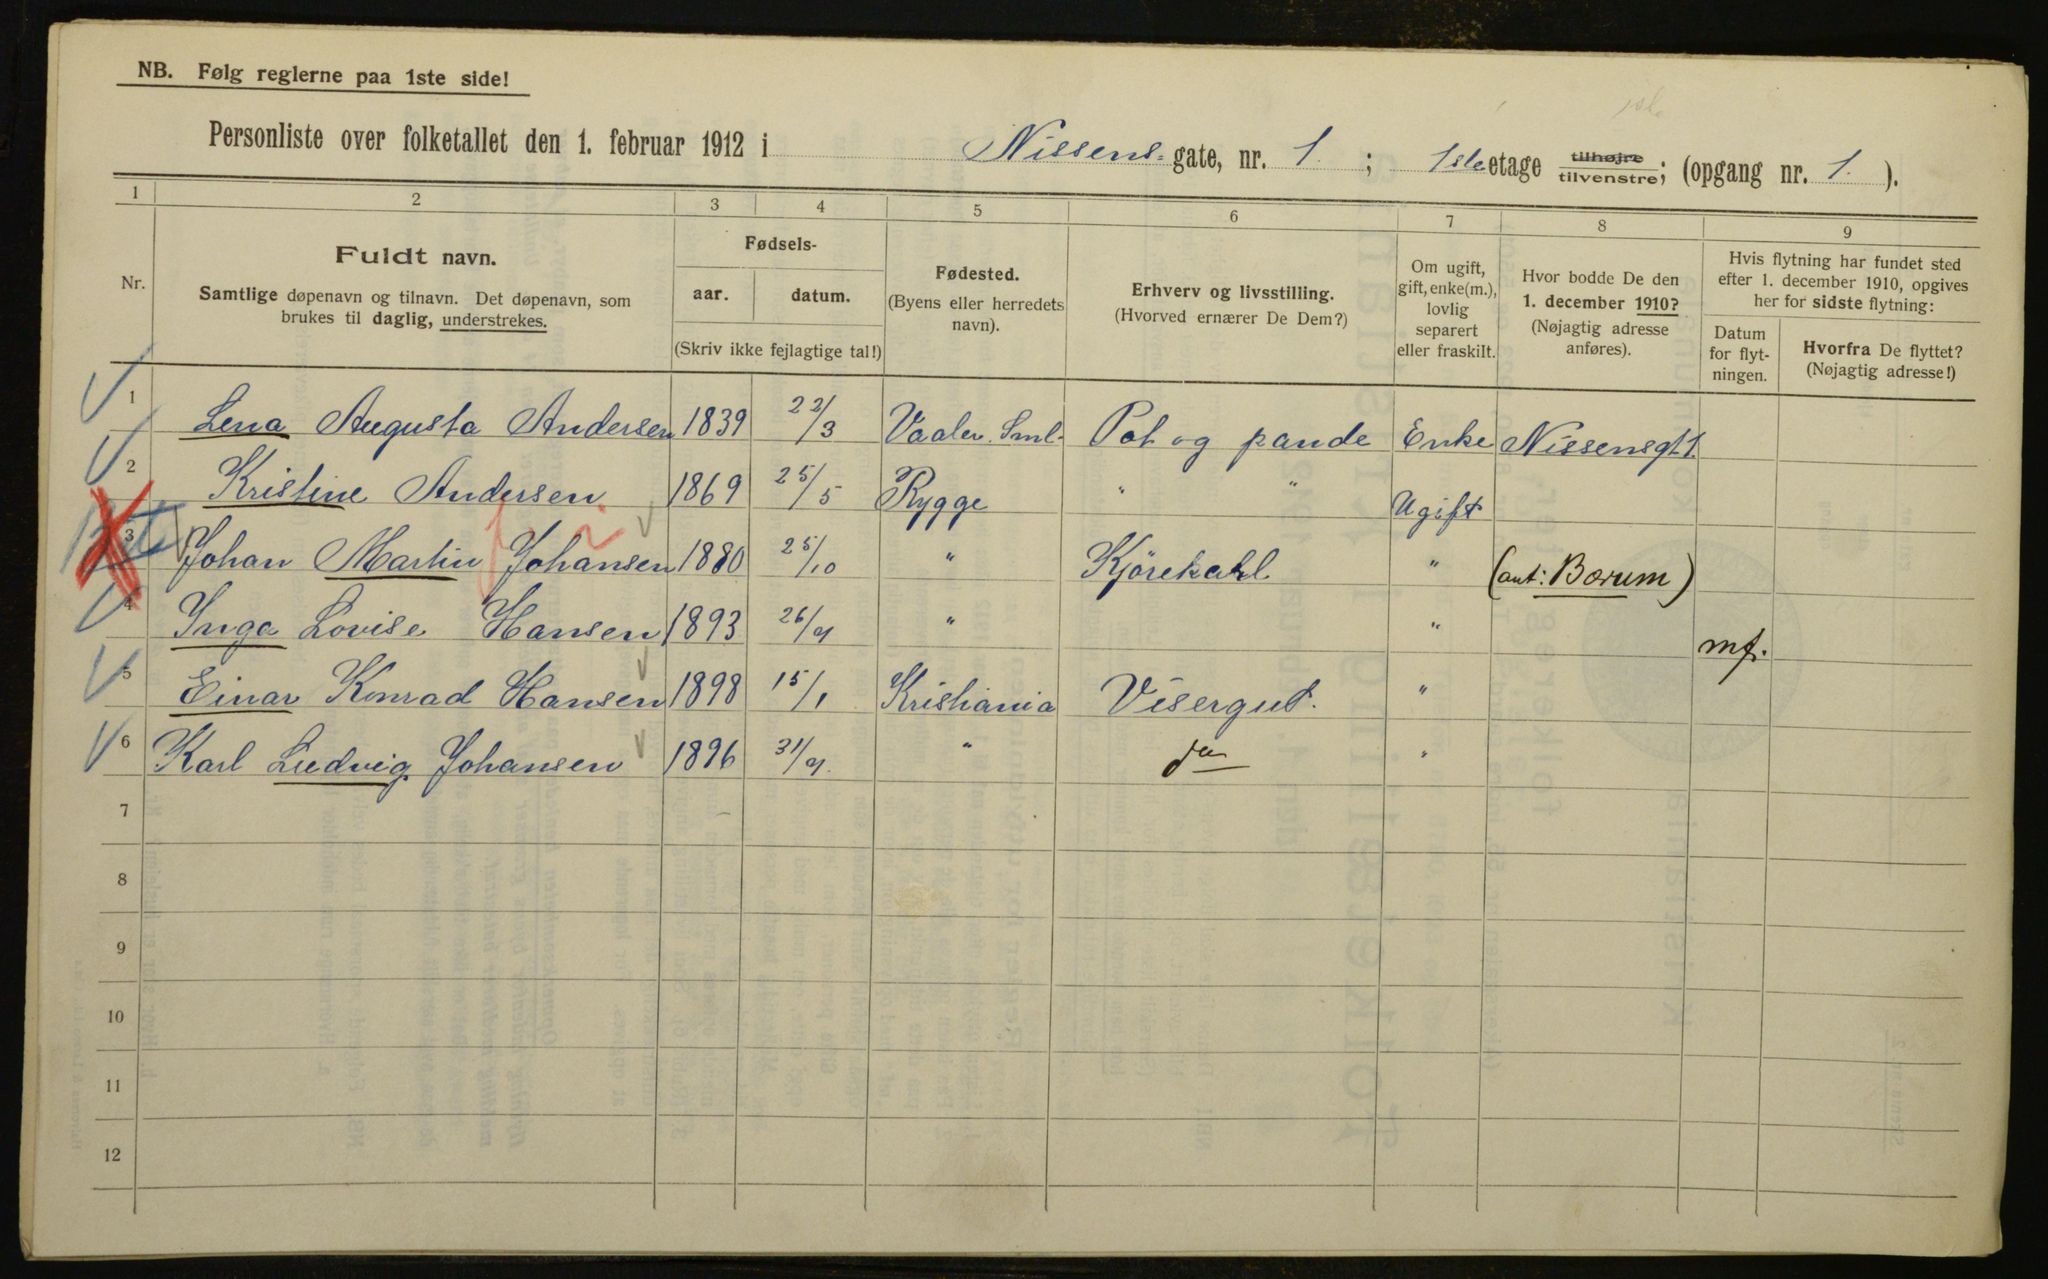 NB. Følg reglerne paa 1ste side!
Personliste over folketallet den 1. februar 1912 i Nissens- gate, nr. 1. ; 1ste etage tilhøjre tilvenstre; (opgang nr. 1. ).
1 2 3 4 5 6 7 8 9
Nr.
Fuldt navn.
Samtlige døpenavn og tilnavn. Det døpenavn, som
brukes til daglig, understrekes.
Fødsels-
aar. datum.
(Skriv ikke fejlagtige tal!)
Fødested.
(Byens eller herredets
navn).
Erhverv og livsstilling.
(Hvorved ernærer De Dem?)
Om ugift,
gift, enke(m.),
lovlig
separert
eller fraskilt.
Hvor bodde De den
1. december 1910?
(Nøjagtig adresse
anføres).
Hvis flytning har fundet sted
efter 1. december 1910, opgives
her for sidste flytning:
Datum
for flyt-
ningen.
Hvorfra De flyttet?
(Nøjagtig adresse!)
1 Lena Augusta Andersen 1839 22/3 Vaaler. Sml. Pot og pande Enke Nissensgt 1.
2 Kristine Andersen 1869 25/5 Rygge " " Ugift
3 Johan Martin Johansen 1880 25/10 " Kjörekarl " (ant: Bærum)
4 Inga Lovise Hansen 1893 26/9 " " mf.
5 Einar Konrad Hansen 1898 15/1 Kristiania Visergut. "
6 Karl Ludvig Johansen 1896 31/9. " do "
7
8
9
10
11
12